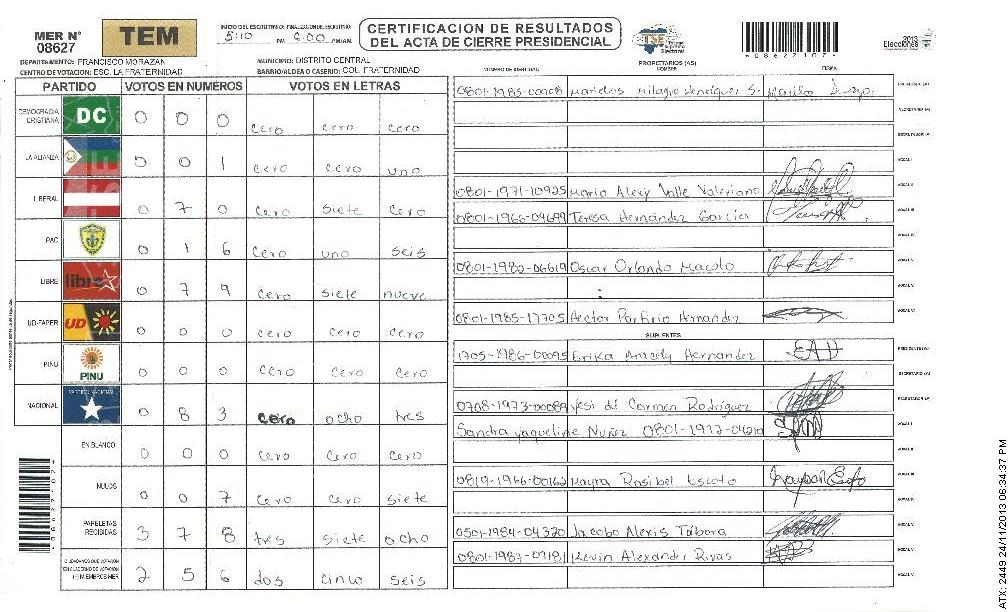 MER N° 08627
TEM
INICIO DEL ESCRUTINIO: FINALIZACION DEL ESCRUTINIO:
5:10 PM 6:00 PM/AM
CERTIFICACION DE RESULTADOS
DEL ACTA DE CIERRE PRESIDENCIAL
TSE Tribunal Supremo Electoral
*08627107*
2013
Elecciones
DEPARTAMENTO: FRANCISCO MORAZAN
MUNICIPIO: DISTRITO CENTRAL
CENTRO DE VOTACION: ESC. LA FRATERNIDAD
BARRIO/ALDEA O CASERIO: COL. FRATERNIDAD
PROPIETARIOS (AS)
NUMERO DE IDENTIDAD NOMBRE FIRMA
PARTIDO VOTOS EN NUMEROS VOTOS EN LETRAS
DEMOCRACIA CRISTIANA DC 0 0 0 cero cero cero
LA ALIANZA 0 0 1 cero cero uno
LIBERAL 0 7 0 cero siete cero
PAC 0 1 6 cero uno seis
LIBRE libre 0 7 9 cero siete nueve
UD-FAPER UD 0 0 0 cero cero cero
PINU PINU 0 0 0 cero cero cero
NACIONAL PARTIDO NACIONAL 0 8 3 cero ocho tres
EN BLANCO 0 0 0 cero cero cero
NULOS 0 0 7 cero cero siete
PAPELETAS RECIBIDAS 3 7 8 tres siete ocho
CIUDADANOS QUE VOTARON EN CUADERNO DE VOTACION (+) MIEMBROS MER 2 5 6 dos cinco seis
0801-1985-00008 Milagro Henriquez S. PRESIDENTE (A)
SECRETARIO (A)
ESCRUTADOR (A)
VOCAL I
0801-1971-10925 Mario Alexy Valle Valeriano VOCAL II
0801-1966-04699 Teresa Hernández García VOCAL III
VOCAL IV
0801-1982-06619 Oscar Orlando VOCAL V
0801-1985-17705 Hector Porfirio Hernandez
SUPLENTES
1705-1986-00095 Erika Aracely Hernandez EAH PRESIDENTE (A)
SECRETARIO (A)
0708-1973-00089 Yesi del Carmen Rodríguez ESCRUTADOR (A)
Sandra Yaqueline Nuñez 0801-1977-04210 VOCAL I
VOCAL II
0819-1966-00162 Mayra Rosibel Escoto VOCAL III
VOCAL IV
0501-1984-04320 Jacobo Alexis Tabora VOCAL V
0801-1987-07181 Kevin Alexander Rivas
*08627107*
ATX: 2449 24/11/2013 06:34:37 PM